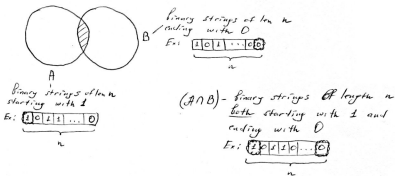 B
binary strings of len n
ending with 0
Ex: 1 0 1 ... 0 0
n
A
binary strings of len n
starting with 1
Ex: 1 0 1 1 ... 0
n
(A∩B) - binary strings of length n
both starting with 1 and
ending with 0
Ex: 1 0 1 1 0 ... 0
n